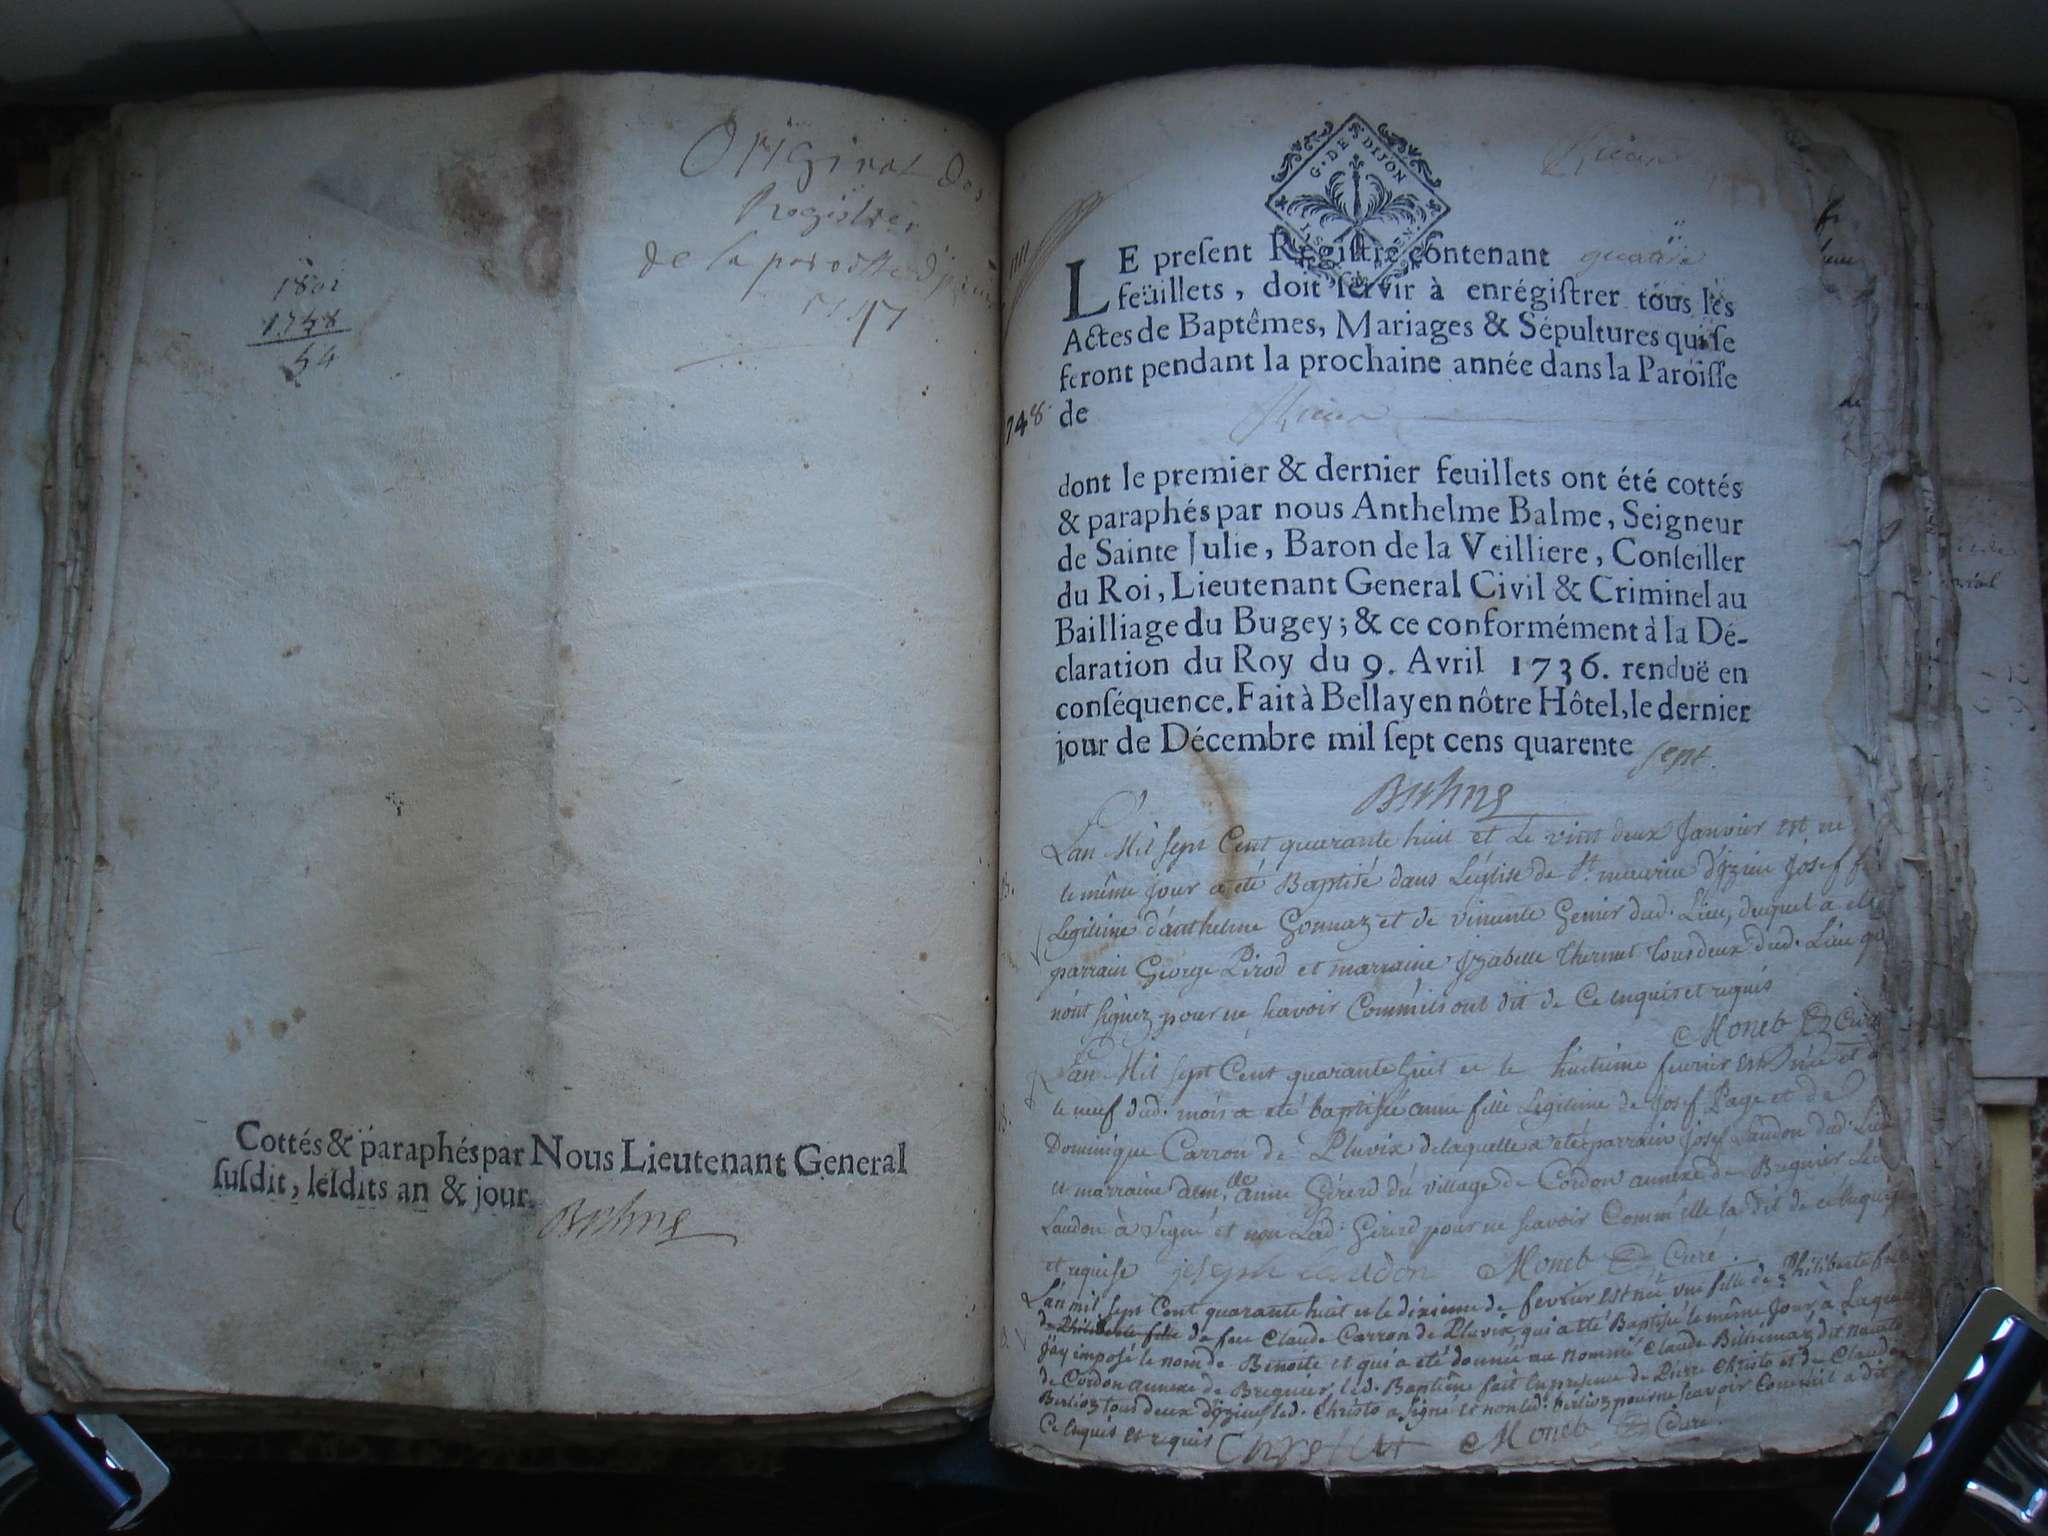 Original des
Registres
de la paroisse
1801
1748
54
Cottés & paraphés par Nous Lieutenant General
susdit, lesdits an & jour.
G. DE DIJON
LE present Registre contenant quatre
feüillets, doit servir à enrégistrer tous les
Actes de Baptêmes, Mariages & Sépultures qui se
feront pendant la prochaine année dans la Paroisse
748
de
dont le premier & dernier feuillets ont été cottés
& paraphés par nous Anthelme Balme, Seigneur
de Sainte Julie, Baron de la Veilliere, Conseiller
du Roi, Lieutenant General Civil & Criminel au
Bailliage du Bugey; & ce conformément à la Dé-
claration du Roy du 9. Avril 1736. renduë en
conséquence. Fait à Bellay en nôtre Hôtel, le dernier
jour de Décembre mil sept cens quarente sept.
Lan Mil sept Cent quarante huit et le vint deux Janvier est ne
le même jour a eté Baptisé dans Léglise de St. maurice d'izieu Josef
Legitime d'anthelme Gonnaz et de vinente Genier dud. Lieu, duquel a eté
parrain George Pirod et marraine Izabelle Thermet tous deux dud. Lieu
nont signez pour ne scavoir Comm'ils ont dit de Ce enquis et requis
Moneb Curé
Lan Mil sept Cent quarante huit et le huitieme fevrier est née et
le neuf dud. mois a eté baptisée anne fille Legitime de Josef Page et de
Dominique Carron de Pluvix delaquelle a eté parrain Josef Laudon dud. Lieu
et marraine demlle anne Gérerd du village de Cordon annexe de Bregnier Led
Laudon à signé et non Lad. Gérerd pour ne scavoir Comm'elle la dit de ce enquise
et requise Moneb Curé
L'an mil sept Cent quarante huit et le dixieme de fevrier est née une fille de Philiberte
de feu Claude Carron de Pluvix qui a eté Baptisée le même Jour, à Laquelle
J'ay imposé le nom de Benoite et qui a eté donnée au nommé Claude dit
de Cordon annexe de Bregnier, led. Baptême fait en presence de Pierre Christo et de Claude
Berlioz tous deux d'izieu led. Christo a signé et non led. Berlioz pour ne scavoir Comm'il a dit
Ce enquis et requis Moneb Curé